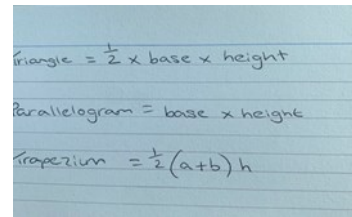 Triangle = 1/2 x base x height
Parallelogram = base x height
Trapezium = 1/2 (a+b) h